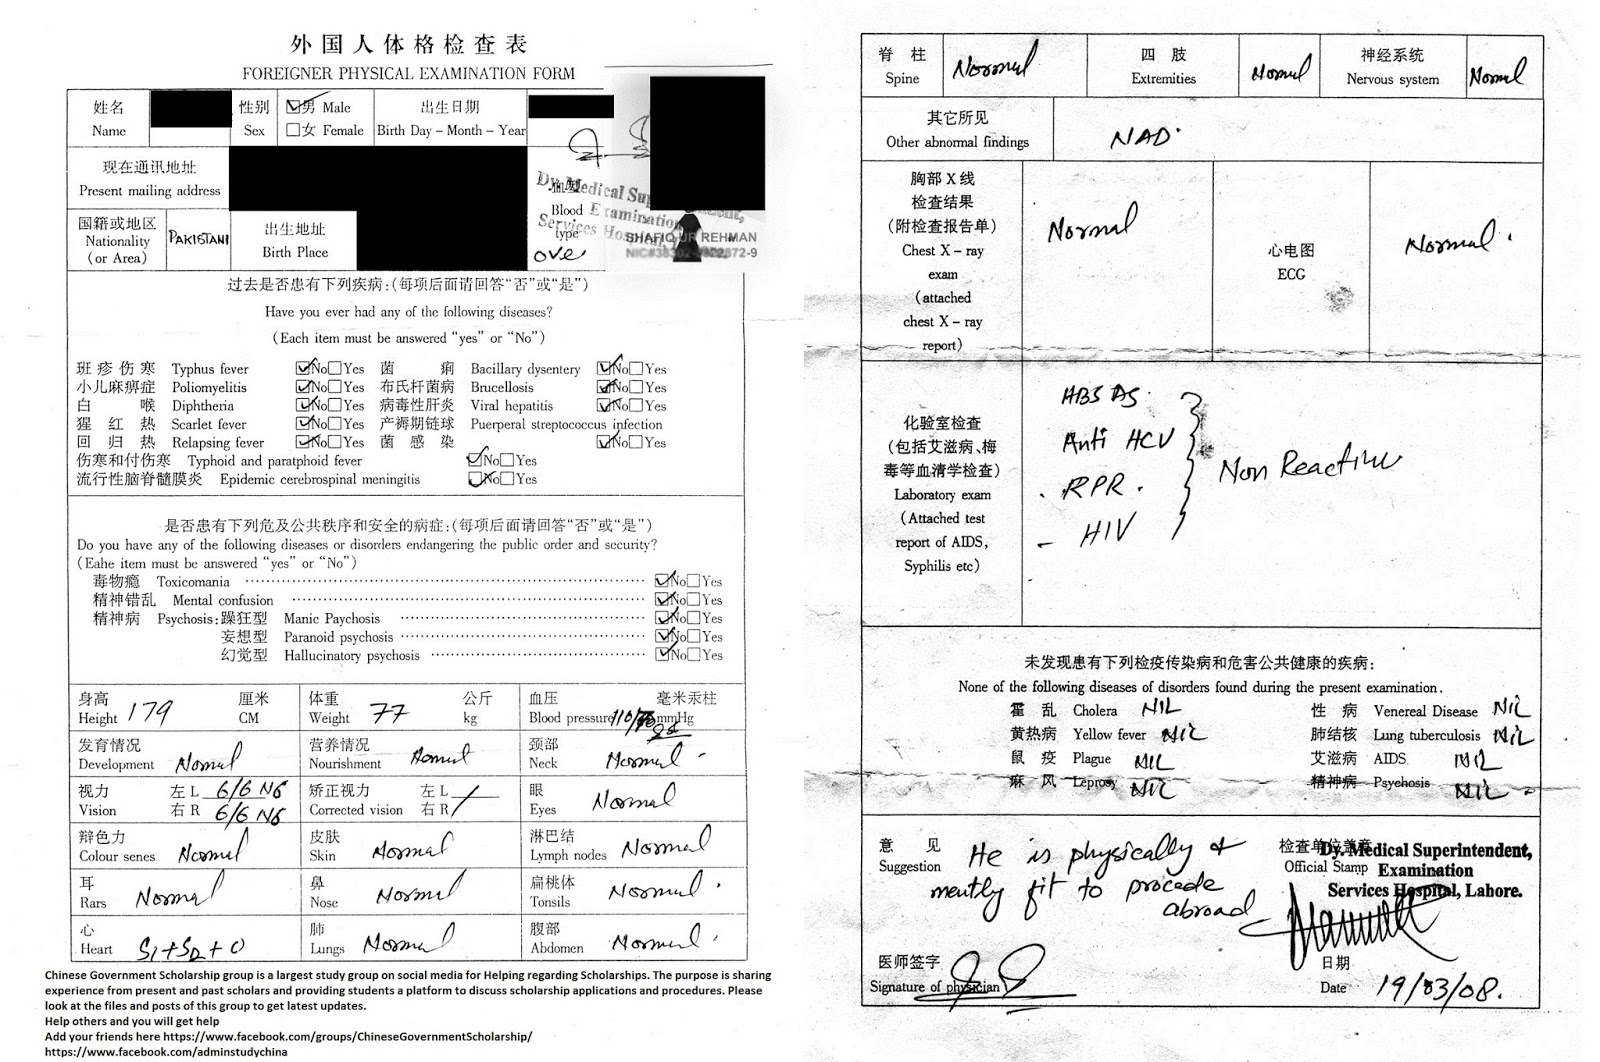 外国人体格检查表
FOREIGNER PHYSICAL EXAMINATION FORM
姓名 Name
性别 Sex
男 Male
女 Female
出生日期 Birth Day – Month – Year
现在通讯地址 Present mailing address
血型 Blood type
ove
Dy. Medical Superintendent,
Examination
Services Hospital,
SHAFIQ UR REHMAN
国籍或地区 Nationality (or Area)
PAKISTANI
出生地址 Birth Place
过去是否患有下列疾病:(每项后面请回答“否”或“是”)
Have you ever had any of the following diseases?
(Each item must be answered “yes” or “No”)
班疹伤寒 Typhus fever No Yes 菌痢 Bacillary dysentery No Yes
小儿麻痹症 Poliomyelitis No Yes 布氏杆菌病 Brucellosis No Yes
白喉 Diphtheria No Yes 病毒性肝炎 Viral hepatitis No Yes
猩红热 Scarlet fever No Yes 产褥期链球 Puerperal streptococcus infection
回归热 Relapsing fever No Yes 菌感染 No Yes
伤寒和付伤寒 Typhoid and paratphoid fever No Yes
流行性脑脊髓膜炎 Epidemic cerebrospinal meningitis No Yes
是否患有下列危及公共秩序和安全的病症:(每项后面请回答“否”或“是”)
Do you have any of the following diseases or disorders endangering the public order and security?
(Eahe item must be answered “yes” or “No”)
毒物瘾 Toxicomania No Yes
精神错乱 Mental confusion No Yes
精神病 Psychosis: 躁狂型 Manic Paychosis No Yes
妄想型 Paranoid psychosis No Yes
幻觉型 Hallucinatory psychosis No Yes
身高 Height 179 厘米 CM
体重 Weight 77 公斤 kg
血压 Blood pressure 110/ 毫米汞柱 mmHg
发育情况 Development Normal
营养情况 Nourishment Normal
颈部 Neck Normal
视力 Vision 左 L 6/6 N6 右 R 6/6 N6
矫正视力 Corrected vision 左 L 右 R
眼 Eyes Normal
辩色力 Colour senes Normal
皮肤 Skin Normal
淋巴结 Lymph nodes Normal
耳 Rars Normal
鼻 Nose Normal
扁桃体 Tonsils Normal
心 Heart S1+S2+0
肺 Lungs Normal
腹部 Abdomen Normal
Chinese Government Scholarship group is a largest study group on social media for Helping regarding Scholarships. The purpose is sharing
experience from present and past scholars and providing students a platform to discuss scholarship applications and procedures. Please
look at the files and posts of this group to get latest updates.
Help others and you will get help
Add your friends here https://www.facebook.com/groups/ChineseGovernmentScholarship/
https://www.facebook.com/adminstudychina
脊柱 Spine Normal
四肢 Extremities Normal
神经系统 Nervous system Normal
其它所见
Other abnormal findings NAD.
胸部X线
检查结果
(附检查报告单)
Chest X – ray
exam
(attached
chest X – ray
report)
Normal
心电图
ECG
Normal.
化验室检查
(包括艾滋病、梅
毒等血清学检查)
Laboratory exam
(Attached test
report of AIDS,
Syphilis etc)
HBS AG.
Anti HCV
RPR.
HIV
Non Reactive
未发现患有下列检疫传染病和危害公共健康的疾病:
None of the following diseases of disorders found during the present examination.
霍乱 Cholera NIL 性病 Venereal Disease NIL
黄热病 Yellow fever NIL 肺结核 Lung tuberculosis NIL
鼠疫 Plague NIL 艾滋病 AIDS NIL
麻风 Leprosy NIL 精神病 Psychosis NIL
意见
Suggestion
He is physically &
mently fit to procede
abroad
检查单位盖章
Official Stamp
Dy. Medical Superintendent,
Examination
Services Hospital, Lahore.
医师签字
Signature of physician
日期
Date 19/03/08.